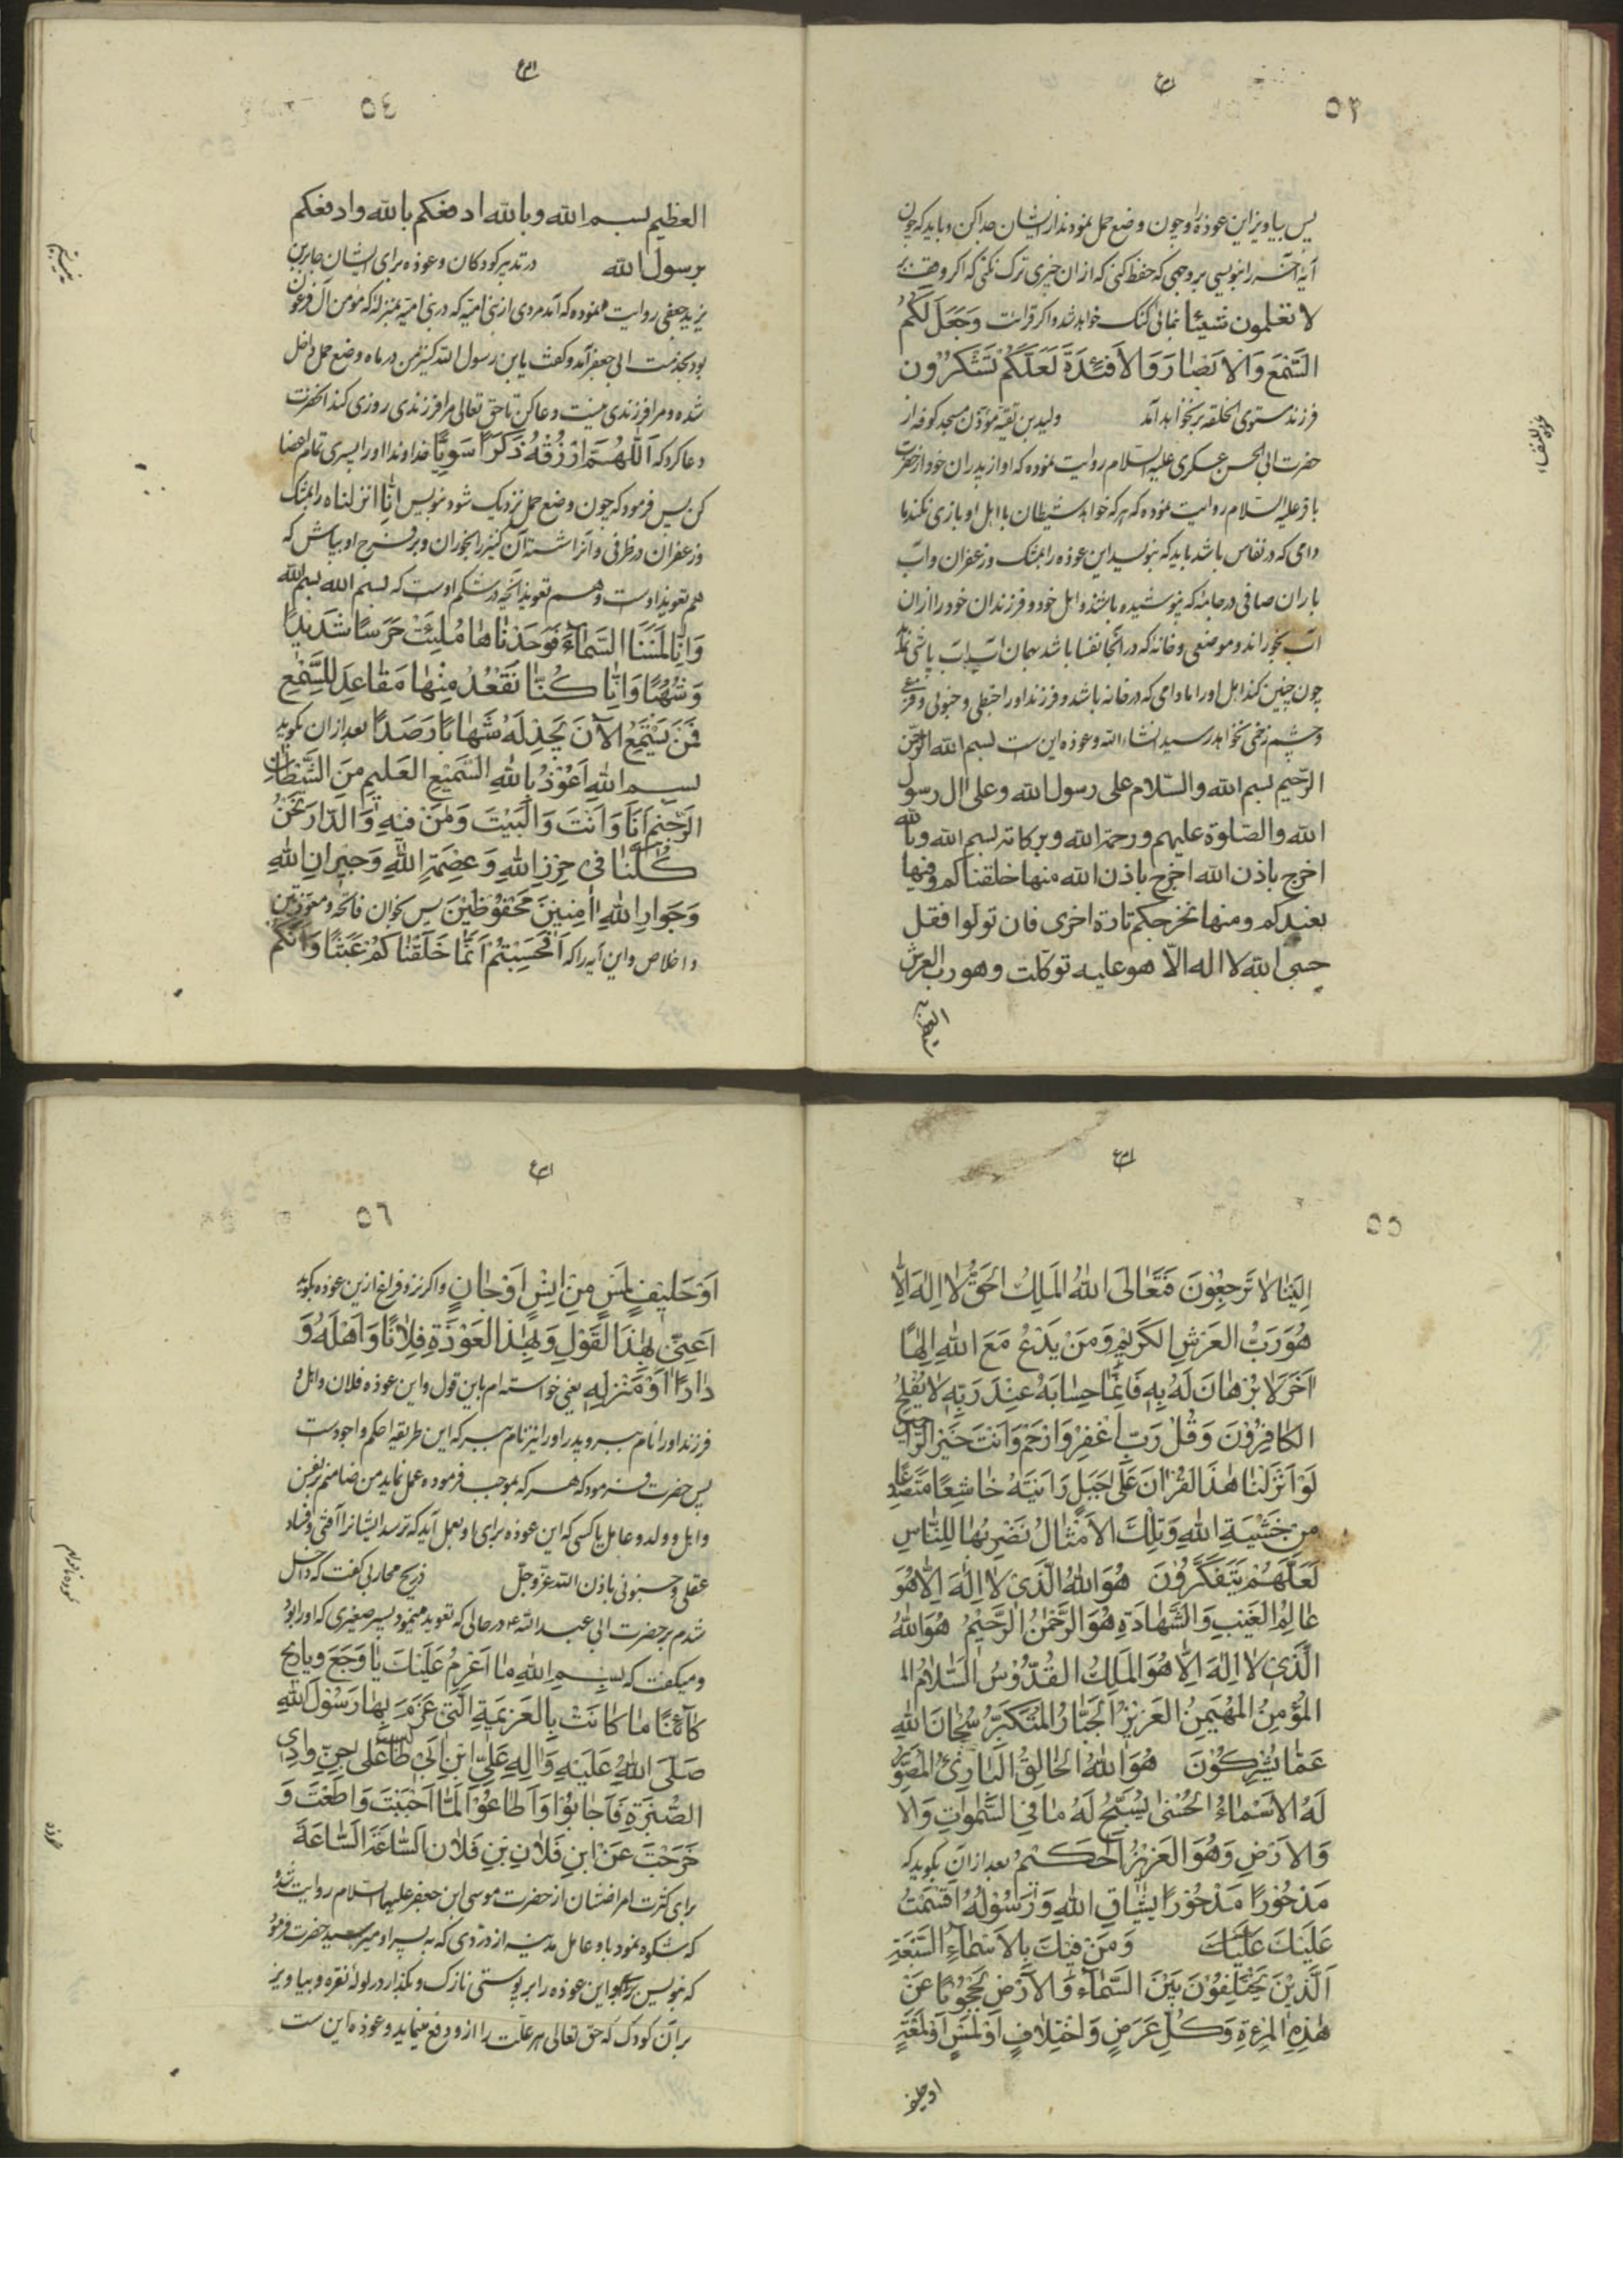 ٥٣
پس بیاویز این عوذه را و چون وضع حمل نمودند از ایشان جدا کن و باید که چون
آیهٔ را بنویسی بر وجهی که حفظ کنی که از آن چیزی ترک نکنی که اگر وقف بر
لا تعلمون شیئا نمائی گنگ خواهد شد و اگر قرائت وَجَعَلَ لَكُمُ
السَّمْعَ وَالْاَبْصَارَ وَالْاَفْئِدَةَ لَعَلَّكُمْ تَشْكُرُونَ
فرزند مستوی الخلقه بر نخواهد آمد ولید بن مؤذن مسجد کوفه از
حضرت ابی الحسن عسکری علیه السلام روایت نموده که او از پدران خود از حضرت
باقر علیه السلام روایت نموده که هر که خواهد شیطان با اهل او بازی نکند تا
دامی که در نفاس باشد باید که بنویسد این عوذه را بمشک و زعفران و آب
باران صافی در جامهٔ که پوشیده باشند و اهل خود و فرزندان خود را از آن
آب بخوراند و موضعی و خانهٔ که در آنجا نفسا باشد بهمان آب آب پاشی
چون چنین کند اهل او را مادامی که در خانه باشد و فرزند او را خبطی و جنونی و فزعی
و چشم زخمی نخواهد رسید انشاء الله و عوذه این ست بسم الله الرحمن
الرّحیم بسم الله والسّلام علی رسول الله وعلی ال رسول
الله والصّلوة علیهم ورحمة الله وبرکاته بسم الله وبالله
اخرج باذن الله اخرج باذن الله منها خلقناکم وفیها
نعیدکم ومنها نخرجکم تارة اخری فان تولوا فقل
حسبی الله لا اله الّا هو علیه توکّلت وهو رب العرش
العظیم
٥٤
العظیم بسم الله وبالله ادفعکم بالله وادفعکم
برسول الله در تدبیر کودکان و عوذه برای ایشان جابر بن
یزید جعفی روایت نموده که آمد مردی از بنی امیّه که در بنی امیّه بمنزله که مؤمن آل فرعون
بود بخدمت ابی جعفر آمد و گفت یا بن رسول الله کنیز من در ماه وضع حمل داخل
شده و مرا فرزندی نیست دعا کن تا حق تعالی مرا فرزندی روزی کند آنحضرت
دعا کرد که اَللّٰهُمَّ ارْزُقْهُ ذَكَرًا سَوِيًّا خداوندا او را پسری تمام اعضا
کن پس فرمود که چون وضع حمل نزدیک شود بنویس انّا انزلناه را بمشک
و زعفران در ظرفی و آنرا شسته آن کنیز را بخوران و بر فرج او بپاش که
هم تعویذ اوست و هم تعویذ آنچه در شکم اوست که بسم الله بسم الله
وَاِنَّا لَمَسْنَا السَّمَاءَ فَوَجَدْنَاهَا مُلِئَتْ حَرَسًا شَدِيدًا
وَشُهُبًا وَاِنَّا كُنَّا نَقْعُدُ مِنْهَا مَقَاعِدَ لِلسَّمْعِ
فَمَنْ يَسْتَمِعِ الْآنَ يَجِدْ لَهُ شَهَابًا رَصَدًا بعد از آن بگوید
بسم اللهِ اَعُوذُ بِاللهِ السَّمِيْعِ العَلِيمِ مِنَ الشَّيْطَانِ
الرَّجِيمِ اَنَا وَاَنْتَ وَالْبَيْتَ وَمَنْ فِيهِ وَالدَّارَ نَحْنُ
كُلُّنَا فِي حِرْزِ اللهِ وَعِصْمَةِ اللهِ وَجِيرَانِ اللهِ
وَجِوَارِ اللهِ اٰمِنِينَ مَحْفُوظِيْنَ پس بخوان فاتحه و معوّذتین
و اخلاص و این آیه را که اَفَحَسِبْتُمْ اَنَّمَا خَلَقْنَاكُمْ عَبَثًا وَاَنَّكُمْ
٥٥
اِلَيْنَا لَا تُرْجَعُونَ فَتَعَالَى اللهُ الْمَلِكُ الْحَقُّ لَا اِلٰهَ اِلَّا
هُوَ رَبُّ الْعَرْشِ الْكَرِيْمِ وَمَنْ يَدْعُ مَعَ اللهِ اِلٰهًا
اٰخَرَ لَا بُرْهَانَ لَهُ بِهِ فَاِنَّمَا حِسَابُهُ عِنْدَ رَبِّهِ لَا يُفْلِحُ
الْكَافِرُوْنَ وَقُلْ رَبِّ اغْفِرْ وَارْحَمْ وَاَنْتَ خَيْرُ الرَّاحِمِينَ
لَوْ اَنْزَلْنَا هٰذَا الْقُرْاٰنَ عَلٰى جَبَلٍ رَاَيْتَهُ خَاشِعًا مُتَصَدِّعًا
مِنْ خَشْيَةِ اللهِ وَتِلْكَ الْاَمْثَالُ نَضْرِبُهَا لِلنَّاسِ
لَعَلَّهُمْ يَتَفَكَّرُوْنَ هُوَ اللهُ الَّذِي لَا اِلٰهَ اِلَّا هُوَ
عَالِمُ الْغَيْبِ وَالشَّهَادَةِ هُوَ الرَّحْمٰنُ الرَّحِيْمُ هُوَ اللهُ
الَّذِي لَا اِلٰهَ اِلَّا هُوَ الْمَلِكُ الْقُدُّوْسُ السَّلَامُ الـ
الْمُؤْمِنُ الْمُهَيْمِنُ الْعَزِيْزُ الْجَبَّارُ الْمُتَكَبِّرُ سُبْحَانَ اللهِ
عَمَّا يُشْرِكُوْنَ هُوَ اللهُ الْخَالِقُ الْبَارِئُ الْمُصَوِّرُ
لَهُ الْاَسْمَاءُ الْحُسْنٰى يُسَبِّحُ لَهُ مَا فِي السَّمٰوَاتِ وَالْا
وَالْاَرْضِ وَهُوَ الْعَزِيْزُ الْحَكِيْمُ بعد از آن بگوید که
مَدْحُوْرًا مَدْحُوْرًا اللهِ وَرَسُوْلُهُ اَقْسَمْتُ
عَلَيْكَ عَلَيْكَ وَمَنْ فِيْكَ بِالْاَسْمَاءِ السَّبْعَةِ
اَلَّذِيْنَ يَخْتَلِفُوْنَ بَيْنَ السَّمَاءِ وَالْاَرْضِ مَحْجُوْبًا عَنْ
هٰذِهِ الْمَرْءَةِ وَكُلِّ عَرَضٍ وَاخْتِلَافٍ اَوْ لَمْسٍ اَوْ لَمْعَةٍ
٥٦
اَوْ لَمْسٍ مِنْ اِنْسٍ اَوْ جَانٍّ و اگر نزد فراغ ازین عوذه بگوید
اَعْنِي بِهٰذَا الْقَوْلِ وَبِهٰذَا الْعَوْذَةِ فُلَانًا وَاَهْلَهُ وَ
دَارَهُ اَوْ مَنْزِلَهُ یعنی خواسته ام باین قول و این عوذه فلان و اهل و
فرزند او را نام ببرد و پدر او را نیز نام ببرد که این طریقه احکم و اجود ست
پس حضرت فرمود که هر که بموجب فرموده عمل نماید من ضامنم بر نفس
و اهل و ولد و عامل یا کسی که این عوذه برای او بعمل آید که نرسد ایشانرا آفتی و فساد
عقلی و جنونی باذن الله عزّ و جلّ ذریح محاربی گفت که داخل
شدم بر حضرت ابی عبد الله ع در حالی که تعویذ مینمود پسر صغیری که او را بود
و میگفت که بِسْمِ اللهِ مَا اَعْزِمُ عَلَيْكَ يَا وَجَعُ وَيَا رِيحُ
كَائِنًا مَا كَانَتْ بِالْعَزِيْمَةِ الَّتِي عَزَمَ بِهَا رَسُوْلُ اللهِ
صَلَّى اللهُ عَلَيْهِ وَاٰلِهِ عَلِيِّ ابْنِ اَبِي طَالِبٍ عَلٰى جِنِّ وَادِي
الصُّبْرَةِ فَاَجَابُوْا وَاَطَاعُوْا لَمَّا اَجَبْتَ وَاَطَعْتَ وَ
خَرَجْتَ عَنِ ابْنِ فُلَانِ بْنِ فُلَانٍ اَلسَّاعَةَ السَّاعَةَ
برای کثرت امراضشان از حضرت موسی ابن جعفر علیهما السلام روایت شده
که شکوه نمود باو عامل مدینه از دردی که به پسر او میرسید حضرت فرمود
که بنویس این عوذه را بر پوستی نازک و بگذار در لولهٔ نقره و بیاویز
بر آن کودک که حق تعالی هر علّت را ازو دفع مینماید و عوذه این ست